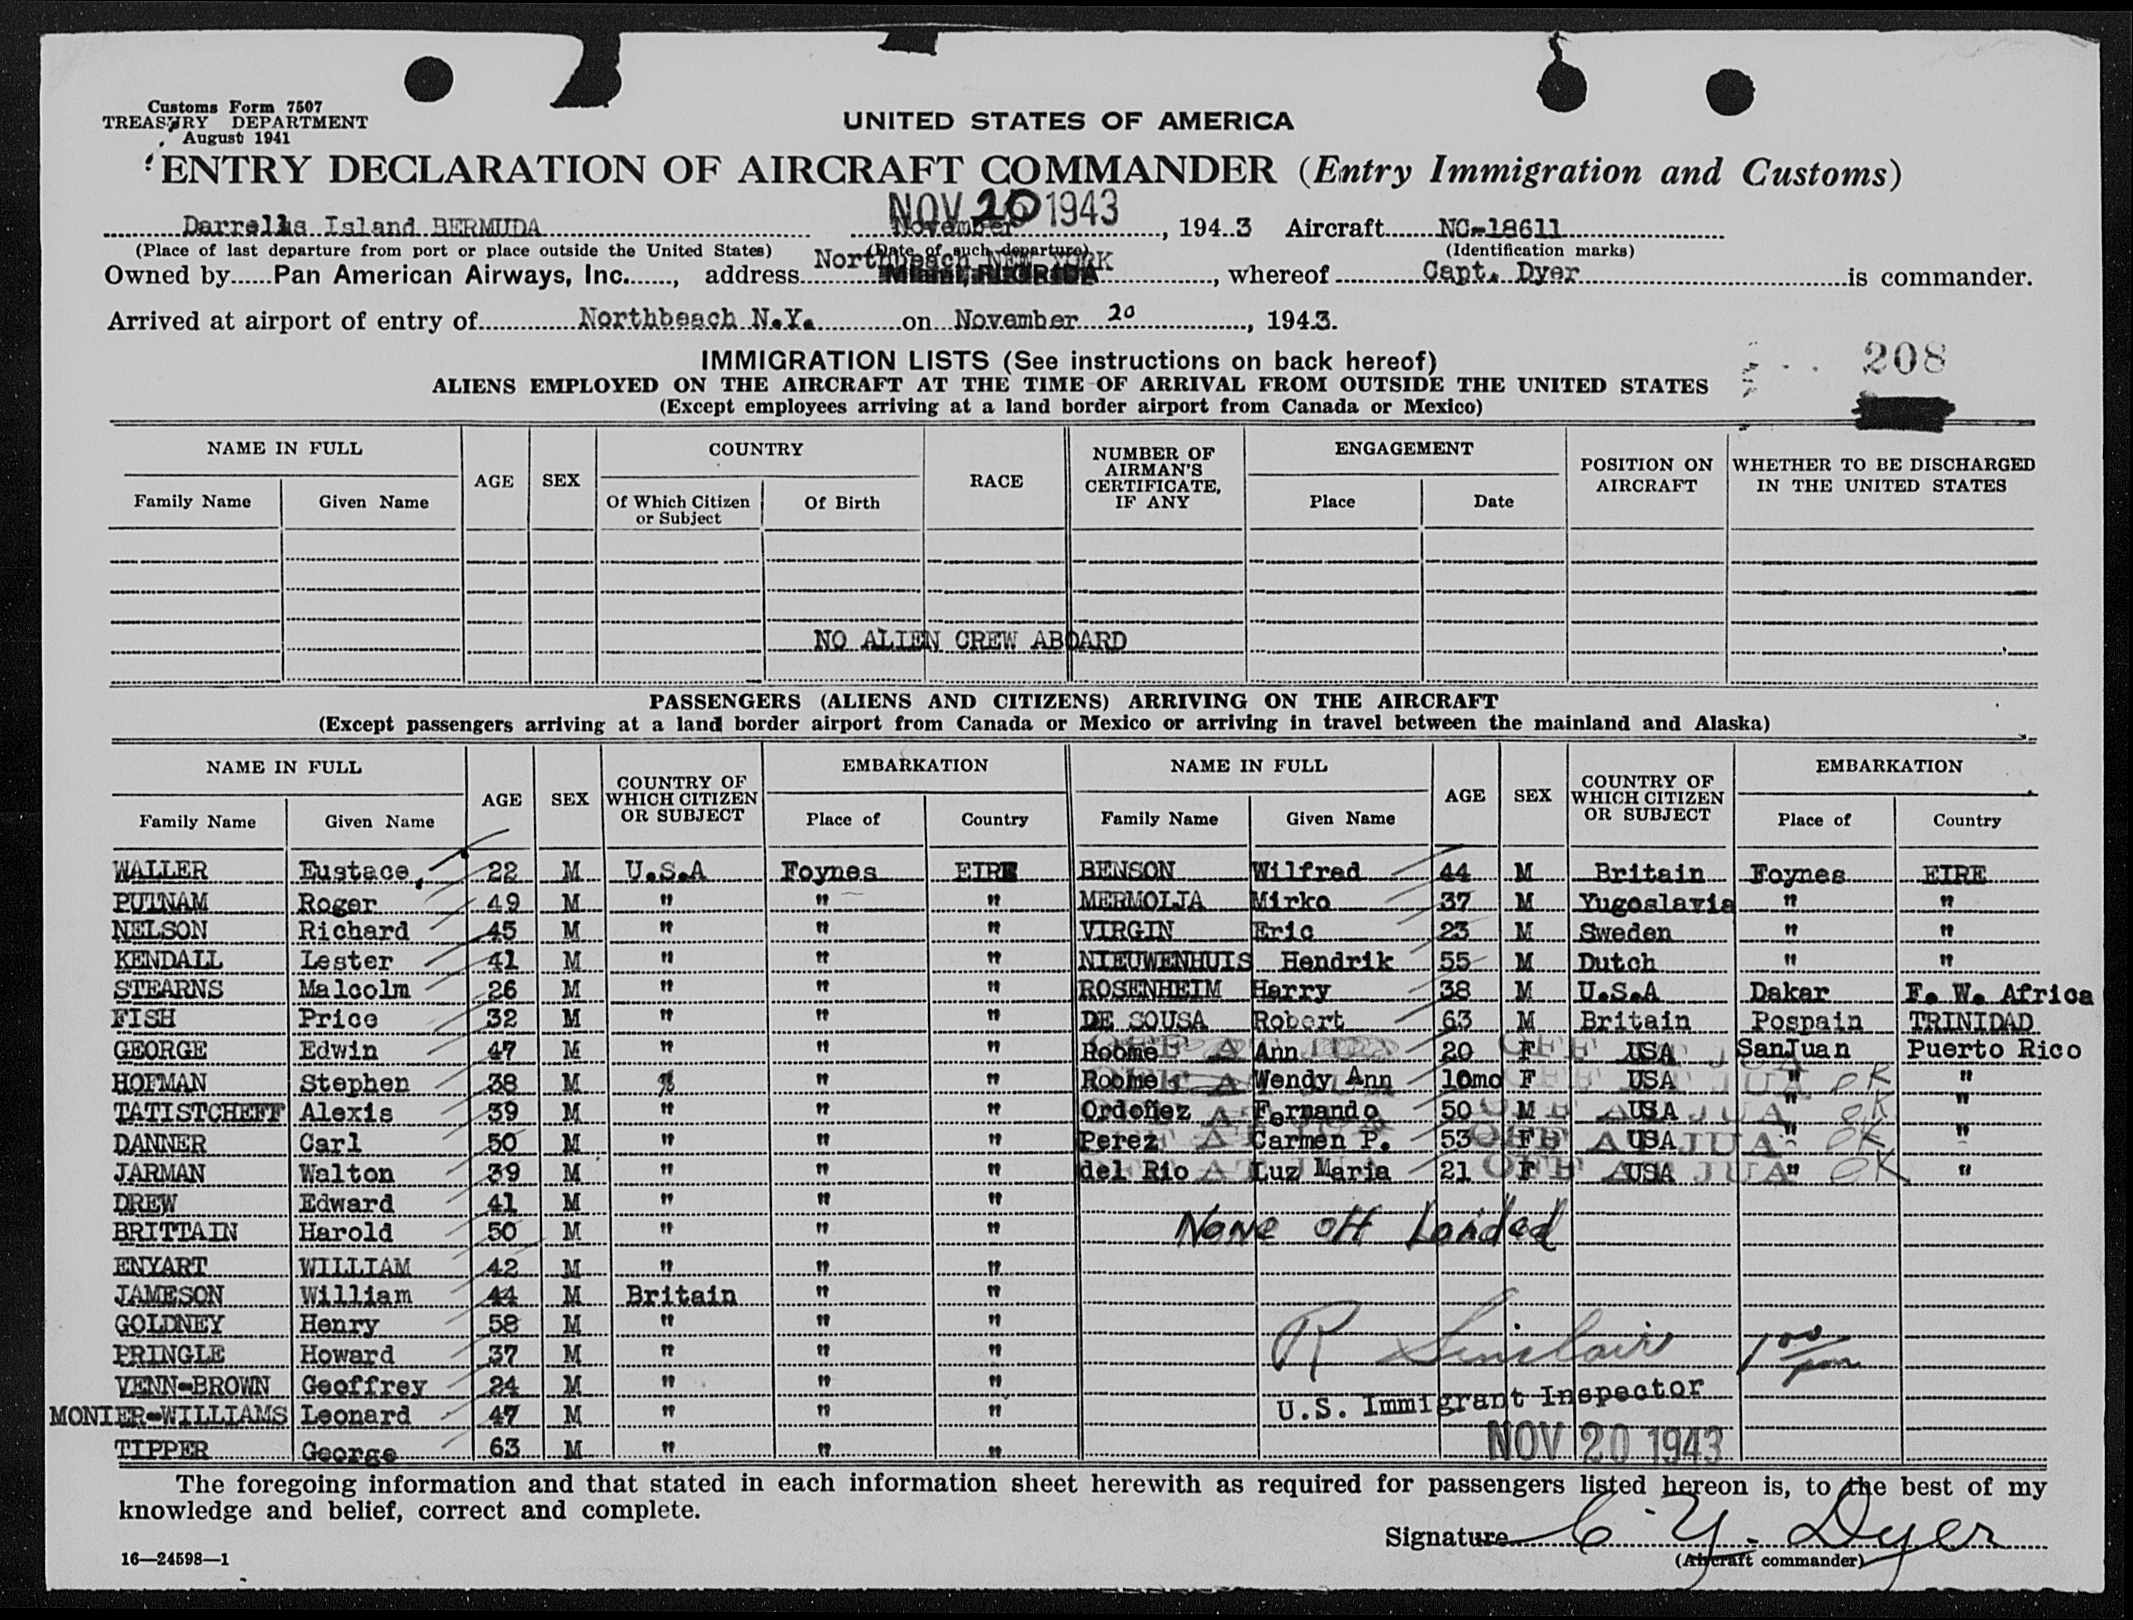 Customs Form 7507
TREASURY DEPARTMENT
August 1941
UNITED STATES OF AMERICA
ENTRY DECLARATION OF AIRCRAFT COMMANDER (Entry Immigration and Customs)
NOV 20 1943
Darrells Island BERMUDA November , 1943 Aircraft NC-18611
(Place of last departure from port or place outside the United States) (Date of such departure) (Identification marks)
Northbeach NEW YORK
Owned by Pan American Airways, Inc., address Miami, FLORIDA, whereof Capt. Dyer is commander.
Arrived at airport of entry of Northbeach N.Y. on November 20, 1943.
208
IMMIGRATION LISTS (See instructions on back hereof)
ALIENS EMPLOYED ON THE AIRCRAFT AT THE TIME OF ARRIVAL FROM OUTSIDE THE UNITED STATES
(Except employees arriving at a land border airport from Canada or Mexico)
NAME IN FULL AGE SEX COUNTRY RACE NUMBER OF AIRMAN'S CERTIFICATE, IF ANY ENGAGEMENT POSITION ON AIRCRAFT WHETHER TO BE DISCHARGED IN THE UNITED STATES
Family Name Given Name Of Which Citizen or Subject Of Birth Place Date
NO ALIEN CREW ABOARD
PASSENGERS (ALIENS AND CITIZENS) ARRIVING ON THE AIRCRAFT
(Except passengers arriving at a land border airport from Canada or Mexico or arriving in travel between the mainland and Alaska)
NAME IN FULL AGE SEX COUNTRY OF WHICH CITIZEN OR SUBJECT EMBARKATION NAME IN FULL AGE SEX COUNTRY OF WHICH CITIZEN OR SUBJECT EMBARKATION
Family Name Given Name Place of Country Family Name Given Name Place of Country
WALLER Eustace, 22 M U.S.A Foynes EIRE BENSON Wilfred 44 M Britain Foynes EIRE
PUTNAM Roger 49 M " " " MERMOLJA Mirko 37 M Yugoslavia " "
NELSON Richard 45 M " " " VIRGIN Eric 23 M Sweden " "
KENDALL Lester 41 M " " " NIEUWENHUIS Hendrik 55 M Dutch " "
STEARNS Malcolm 26 M " " " ROSENHEIM Harry 38 M U.S.A Dakar F. W. Africa
FISH Price 32 M " " " DE SOUSA Robert 63 M Britain Pospain TRINIDAD
GEORGE Edwin 47 M " " " Roome Ann 20 F USA SanJuan Puerto Rico OFF AT JUA
HOFMAN Stephen 38 M " " " Roome Wendy Ann 10mo F USA " OK " OFF AT JUA
TATISTCHEFF Alexis 39 M " " " Ordoñez Fernando 50 M USA " OK " OFF AT JUA
DANNER Carl 50 M " " " Perez Carmen P. 53 F USA " OK " OFF AT JUA
JARMAN Walton 39 M " " " del Rio Luz Maria 21 F USA " OK " OFF AT JUA
DREW Edward 41 M " " "
BRITTAIN Harold 50 M " " " None off Loaded
ENYART WILLIAM 42 M " " "
JAMESON William 44 M Britain " "
GOLDNEY Henry 58 M " " "
PRINGLE Howard 37 M " " " R Sinclair 1 00 pm
VENN-BROWN Geoffrey 24 M " " "
MONIER-WILLIAMS Leonard 47 M " " " U.S. Immigrant Inspector
TIPPER George 63 M " " " NOV 20 1943
The foregoing information and that stated in each information sheet herewith as required for passengers listed hereon is, to the best of my
knowledge and belief, correct and complete.
Signature C. Y. Dyer
16—24598—1 (Aircraft commander)